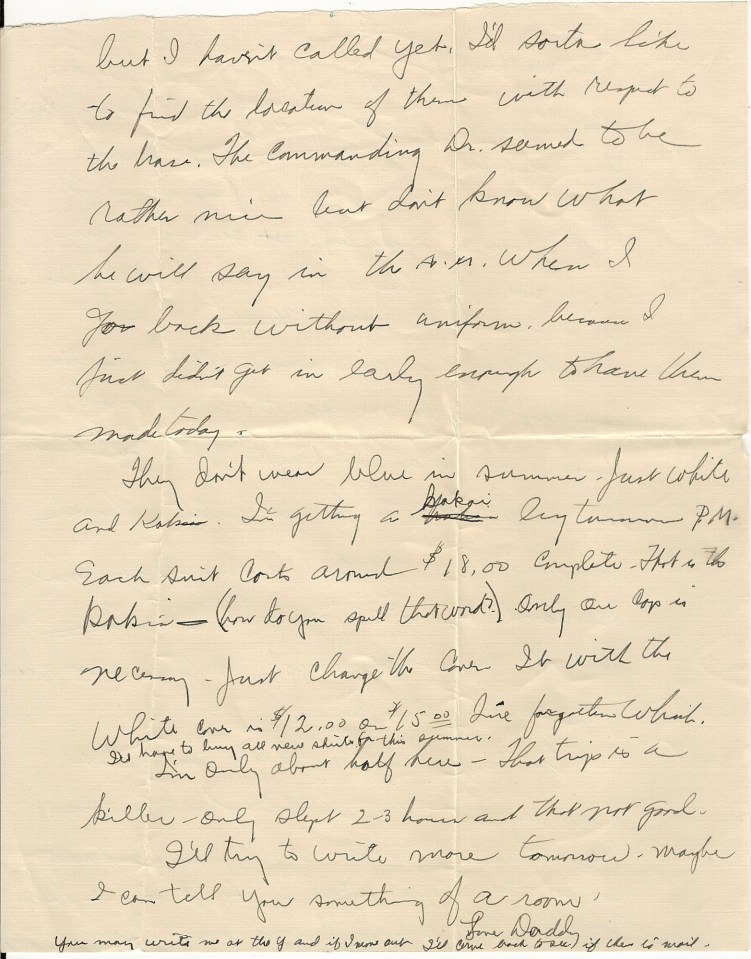 but I haven't called yet. I'd sorta like
to find the location of them with respect to
the base. The Commanding Dr. seemed to be
rather nice but don't know what
he will say in the a.m. when I
go back without uniform. because I
just didn't get in early enough to have them
made today.
They don't wear blue in summer - Just white
and Kakis. I'm getting a kakai by tomorrow P.M.
Each suit costs around $18.00 complete - that is the
kakis - (how do you spell that word?). Only one cap is
necessary - Just change the cover. It with the
White cover is $12.00 or $15.00 I've forgotten which.
I'll have to buy all new shirts for this summer.
I'm only about half here - That trip is a
killer - only slept 2-3 hours and that not good.
I'll try to write more tomorrow. maybe
I can tell you something of a room.
Love Daddy
You may write me at the Y and if I move out I'll come back to see if there is mail.